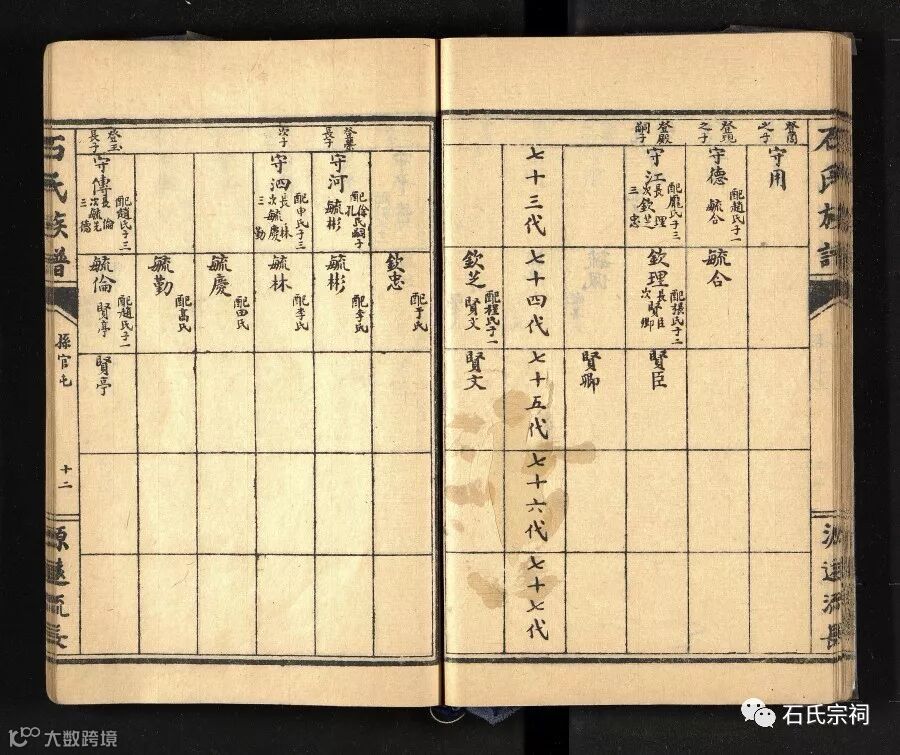 石氏族譜
源遠流長
之子
守用
之子
守德
配趙氏子一
毓合
毓合
登殿
嗣子
守江
配龐氏子三
長理
次欽芝
三忠
欽理
配張氏子二
長賢臣
次卿
賢臣
賢卿
七十三代
七十四代
七十五代
七十六代
七十七代
欽芝
配程氏子一
賢文
賢文
欽忠
配于氏
長子
守河
配徐氏嗣子
孔
毓彬
毓彬
配李氏
次子
守泗
配申氏子三
長林
次毓慶
三勤
毓林
配李氏
毓慶
配田氏
毓勤
配高氏
登玉
長子
守傳
配趙氏子三
長倫
次毓先
三德
毓倫
配趙氏子一
賢亭
賢亭
石氏族譜
孫官屯
十二
源遠流長
石氏宗祠
大数跨境